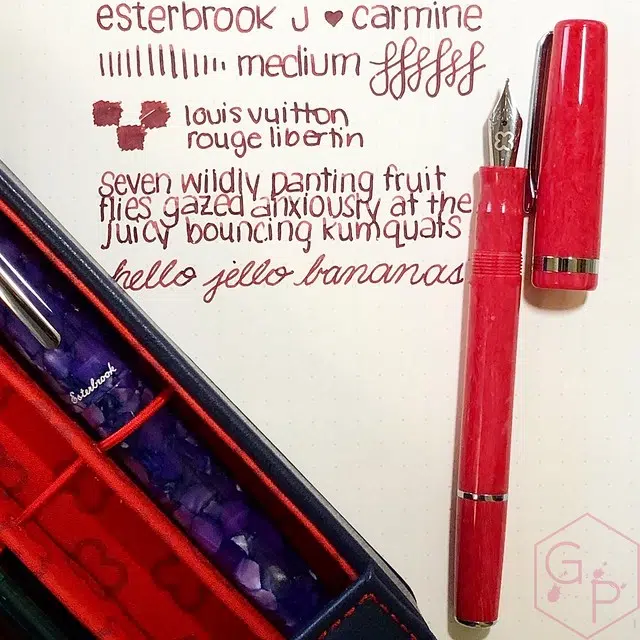 esterbrook J ♥ carmine
medium
louis vuitton
rouge libertin
seven wildly panting fruit
flies gazed anxiously at the
juicy bouncing kumquats
hello jello bananas
Esterbrook
G P